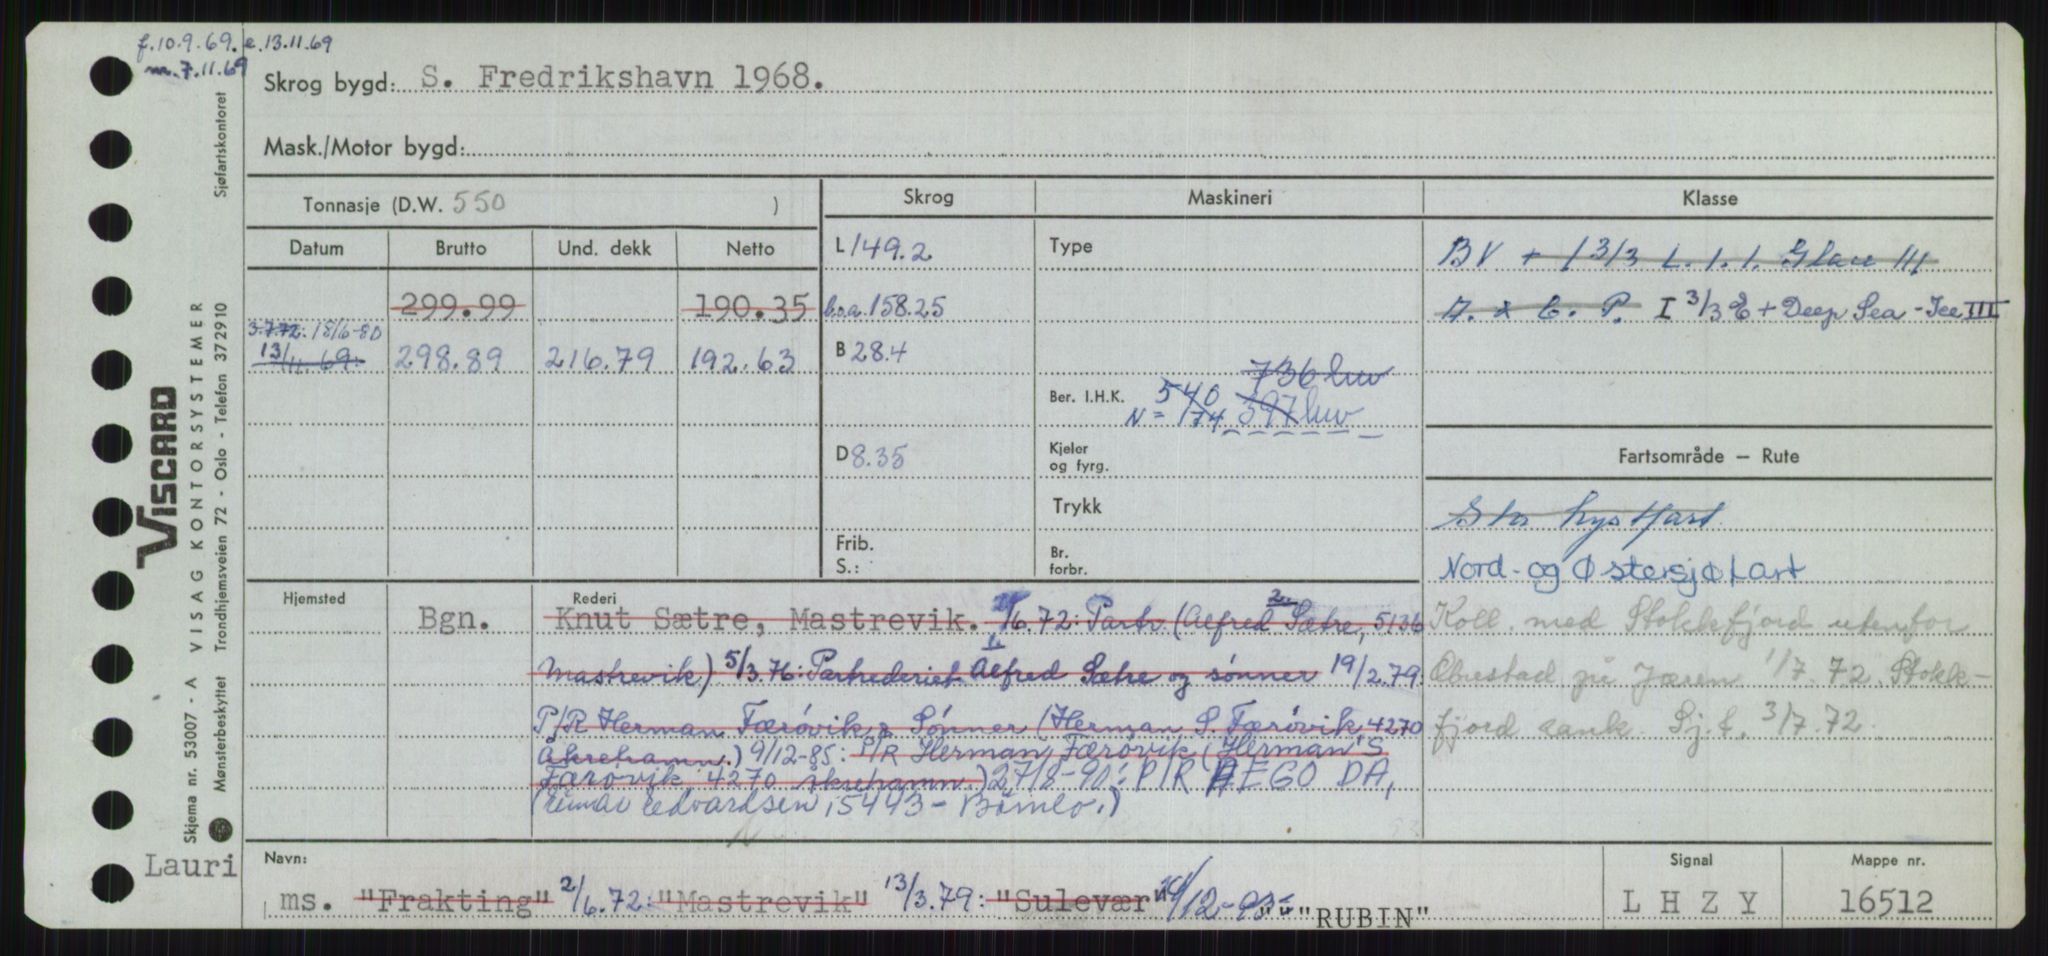 f.10.9.69. e.13.11.69
m.7.11.69
Skrog bygd: S. Fredrikshavn 1968.
Mask./Motor bygd:
Tonnasje (D.W. 550 )
Skrog
Maskineri
Klasse
Datum Brutto Und. dekk Netto
299.99 190.35
3.7.72: 18/6-80
13/11.69. 298.89 216.79 192.63
L 149.2
b.o.a. 158.25
B 28.4
D 8.35
Frib.
S.:
Type
736 hw
Ber. I.H.K. 540 397 hw
N = 174
Kjeler
og fyrg.
Trykk
Br.
forbr.
BV + I 3/3 L. 1. 1. Glace III
A. & C. P. I 3/3 E + Deep Sea - Ice III
Fartsområde — Rute
Stor kystfart
Nord- og Østersjøfart
Koll. med Stokkefjord utenfor
Obrestad på Jæren 1/7.72. Stokk-
fjord sank. Sj.f. 3/7.72.
Hjemsted
Bgn.
Rederi
Knut Sætre, Mastrevik. 2/6.72: Partr. (Alfred Sætre, 5136
Mastrevik) 5/3.76: Partrederiet Alfred Sætre og sønner 19/2.79.
P/R Herman Færøvik & Sønner (Herman S. Færøvik, 4270
Åkrehamn.) 9/12-85: P/R Herman Færøvik (Herman S
Færøvik 4270 Åkrehamn.) 27/8-90: P/R ÆGO DA,
(Einar Edvardsen, 5443 - Bømlo.)
Lauri
Navn:
ms. "Frakting" 2/6.72: "Mastrevik" 13/3.79: "Sulevær" /12-93-
"""RUBIN"
Signal
L H Z Y
Mappe nr.
16512
VISCARD
Skjema nr. 53007 - A VISAG KONTORSYSTEMER
Mønsterbeskyttet Trondhjemsveien 72 - Oslo - Telefon 372910
Sjøfartskontoret